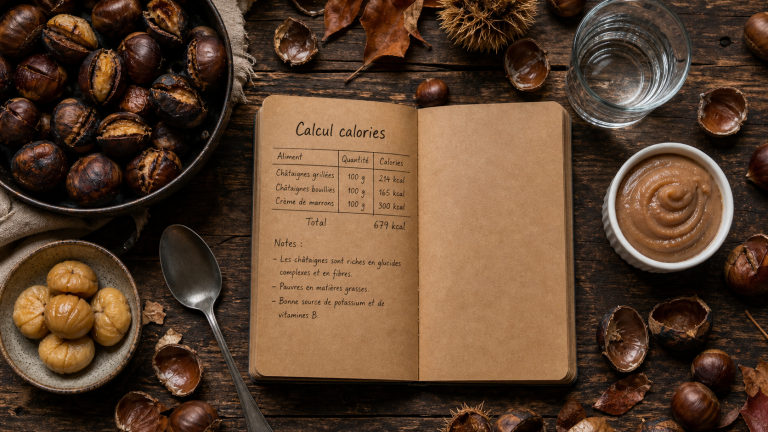 Calcul calories
Aliment Quantité Calories
Châtaignes grillées 100 g 214 kcal
Châtaignes bouillies 100 g 165 kcal
Crème de marrons 100 g 300 kcal
Total 679 kcal
Notes :
- Les châtaignes sont riches en glucides
complexes et en fibres.
- Pauvres en matières grasses.
- Bonne source de potassium et de
vitamines B.